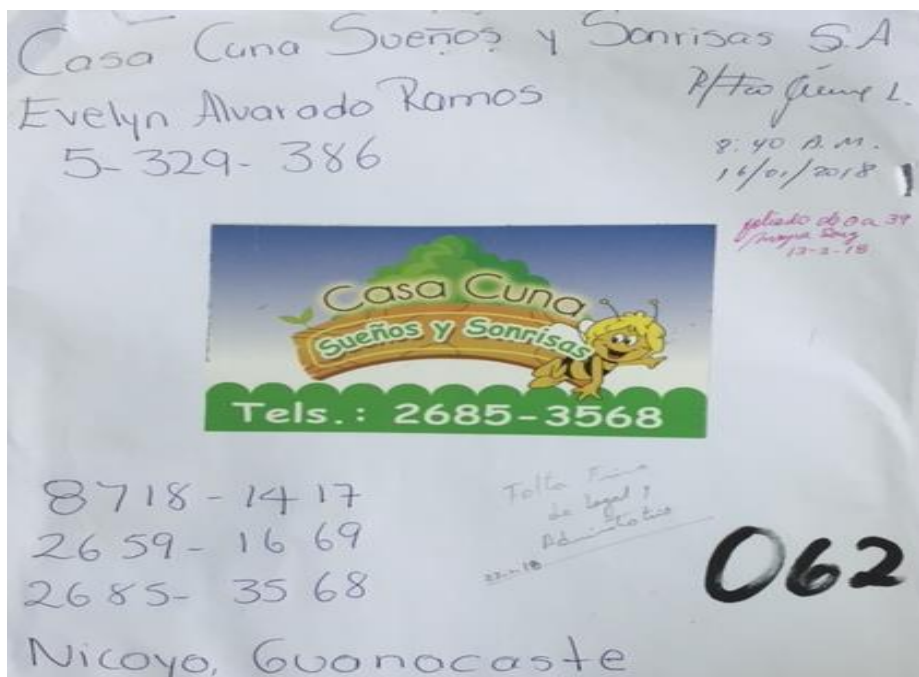 Casa Cuna Sueños y Sonrisas S.A
Evelyn Alvarado Ramos
5-329-386
8:40 A.M.
16/01/2018
foliado de 0 a 39
13-2-18
Casa Cuna
Sueños y Sonrisas
Tels.: 2685-3568
8718-1417
2659-1669
2685-3568
Falta Firma
de Legal y
Administrativo
062
Nicoya, Guanacaste